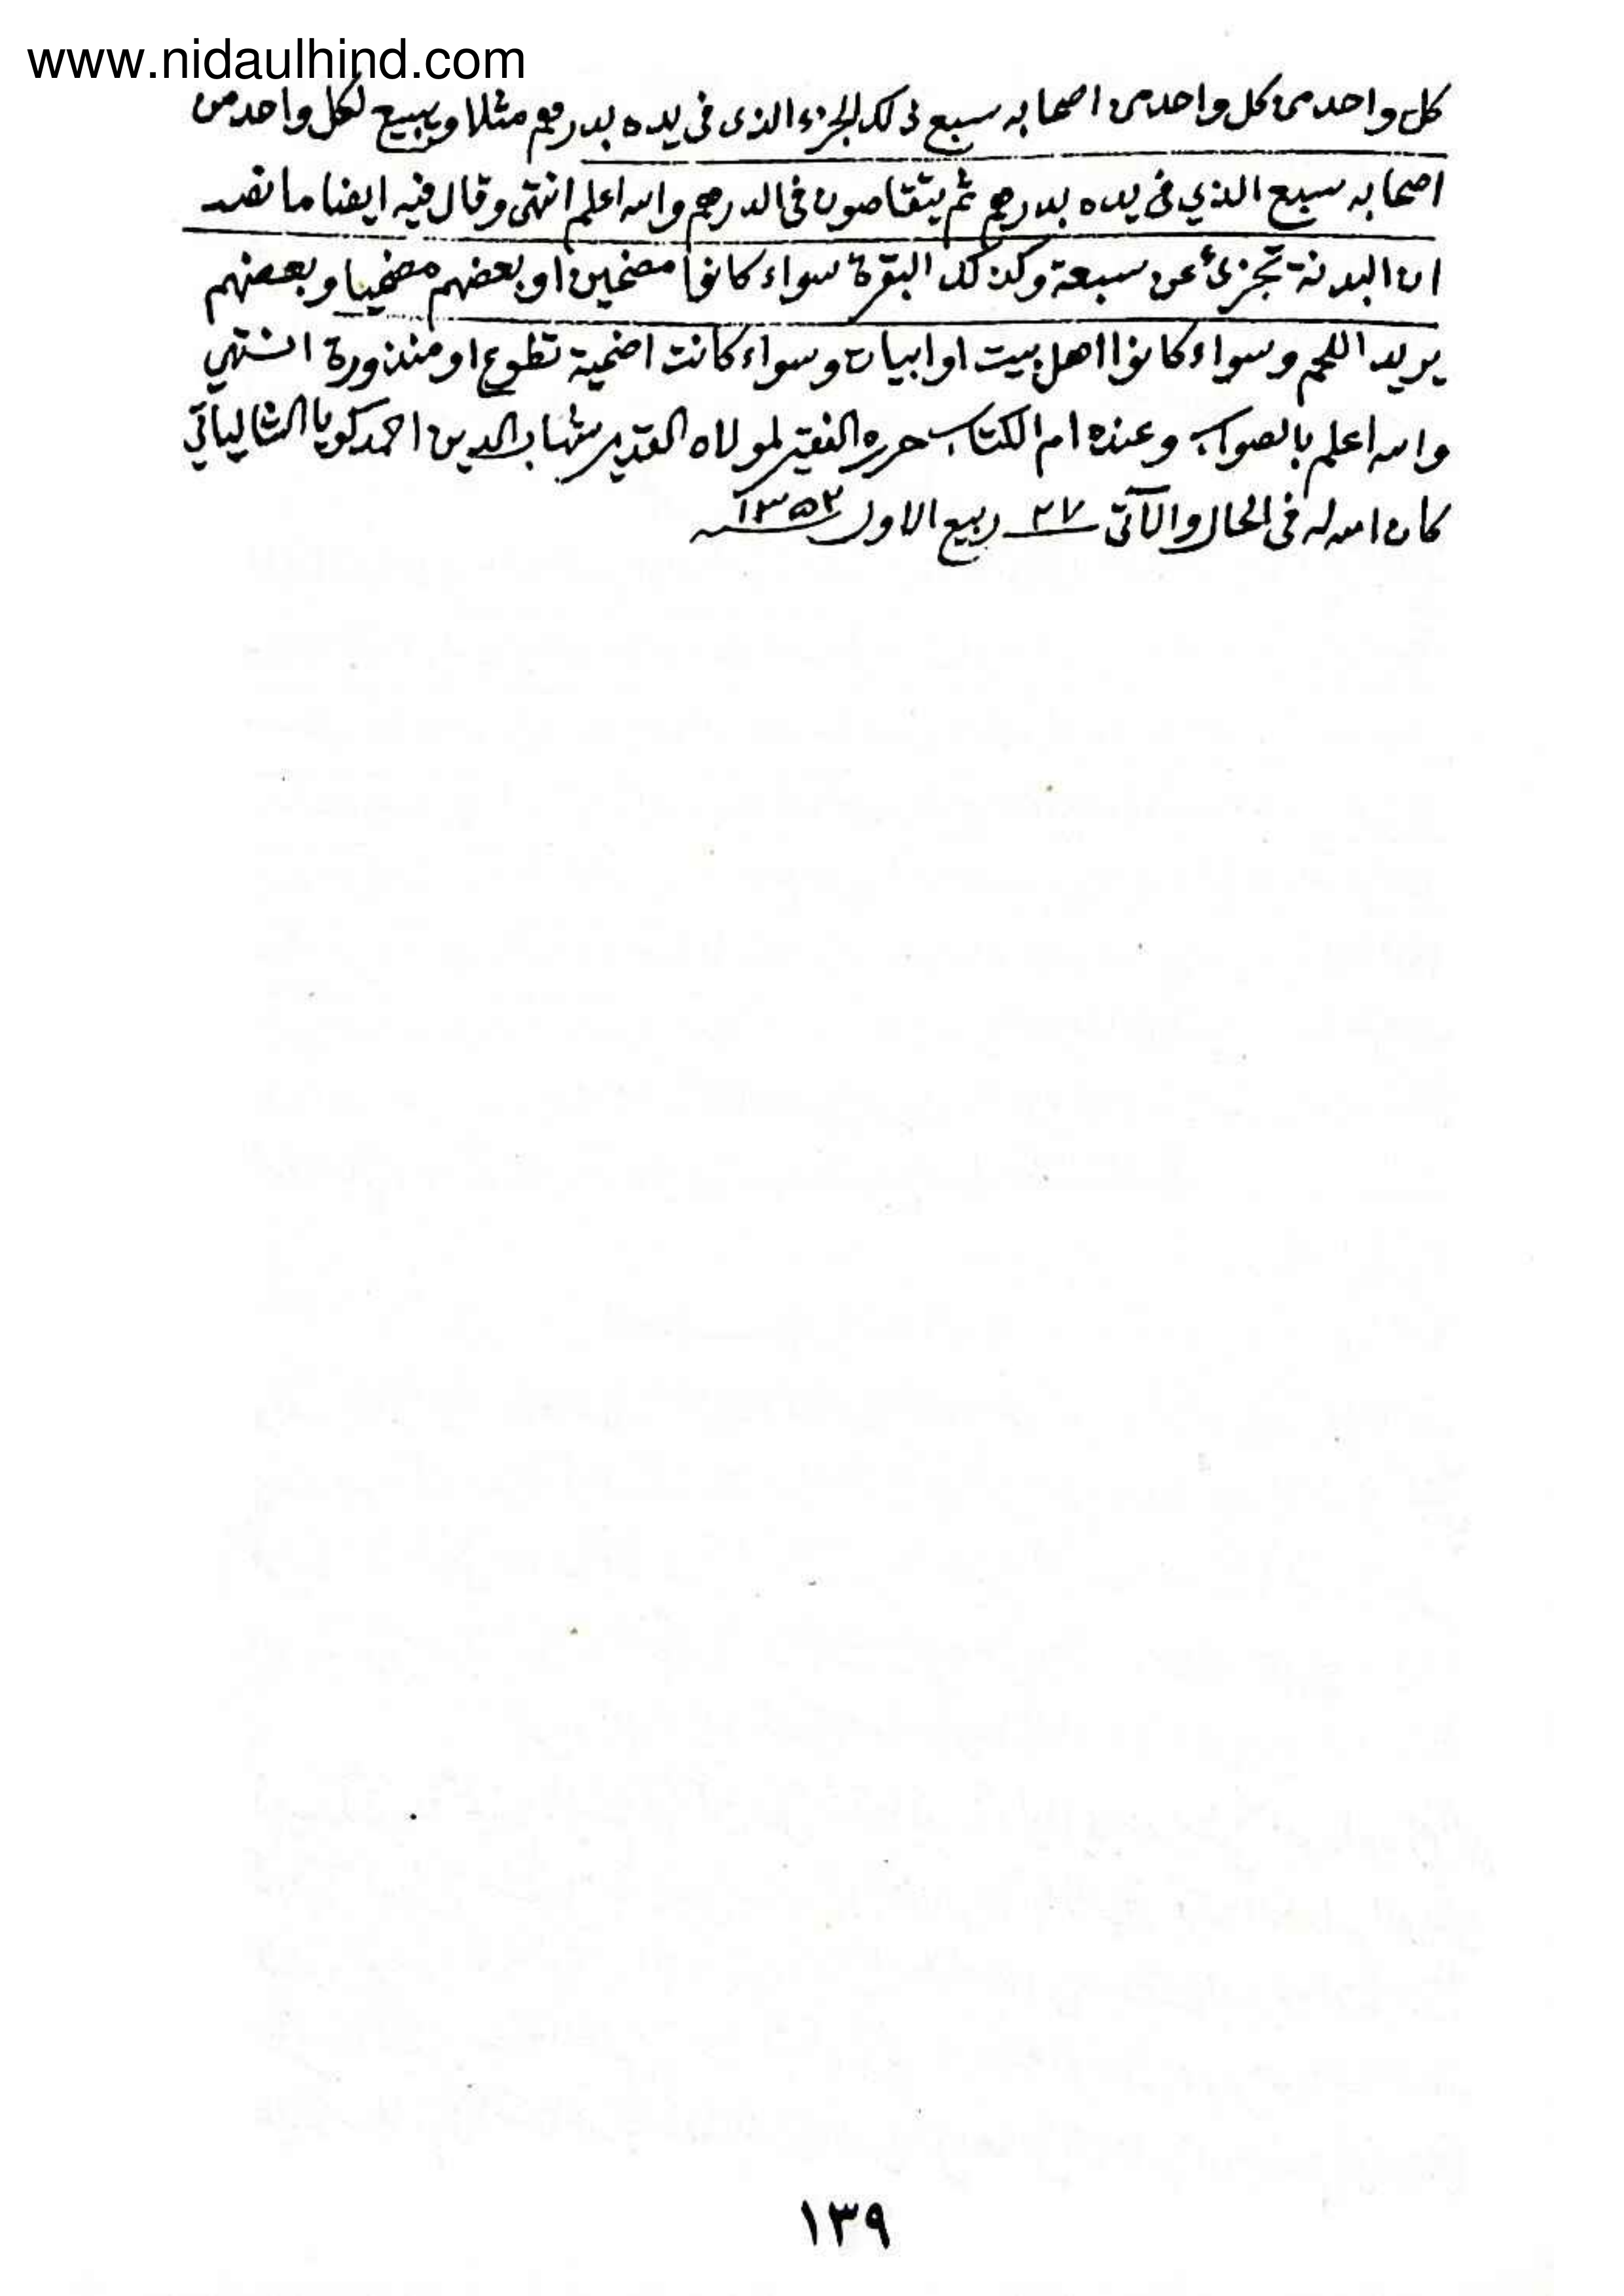 www.nidaulhind.com
كل واحد من كل واحد من اصحابه سبع ذلك الجزء الذى فى يده بدرهم مثلا ويبيع لكل واحد من
اصحابه سبع الذي فى يده بدرهم ثم يتقاصون فى الدرهم والله اعلم انتهى وقال فيه ايضا ما نصه
ان البدنة تجزئ عن سبعة وكذلك البقرة سواء كانوا مضحين او بعضهم مضحيا وبعضهم
يريد اللحم وسواء كانوا اهل بيت او ابيات وسواء كانت اضحية تطوع او منذورة انتهي
والله اعلم بالصواب وعنده ام الكتاب حرره الفقير لمولاه القدير شهاب الدين احمد كويا الشالياتي
كان الله له فى الحال والآتى ٢٧ ربيع الاول ١٣٥٢
١٣٩